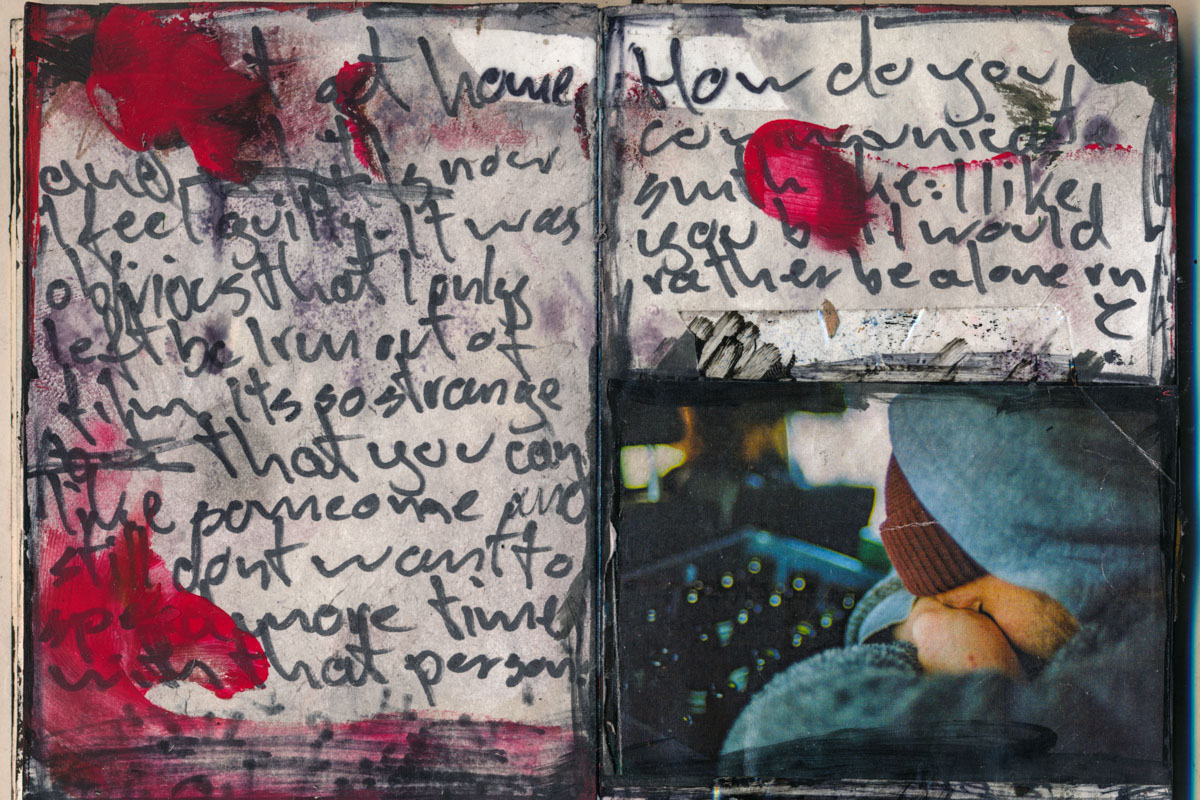 I got home
and
I feel guilty. It was
obvious that I only
left bc I run out of
film. Its so strange
that you can
like someone and
still dont want to
spend more time
with that person.
How do you
communicate
smth like: I like
you but I would
rather be alone rn